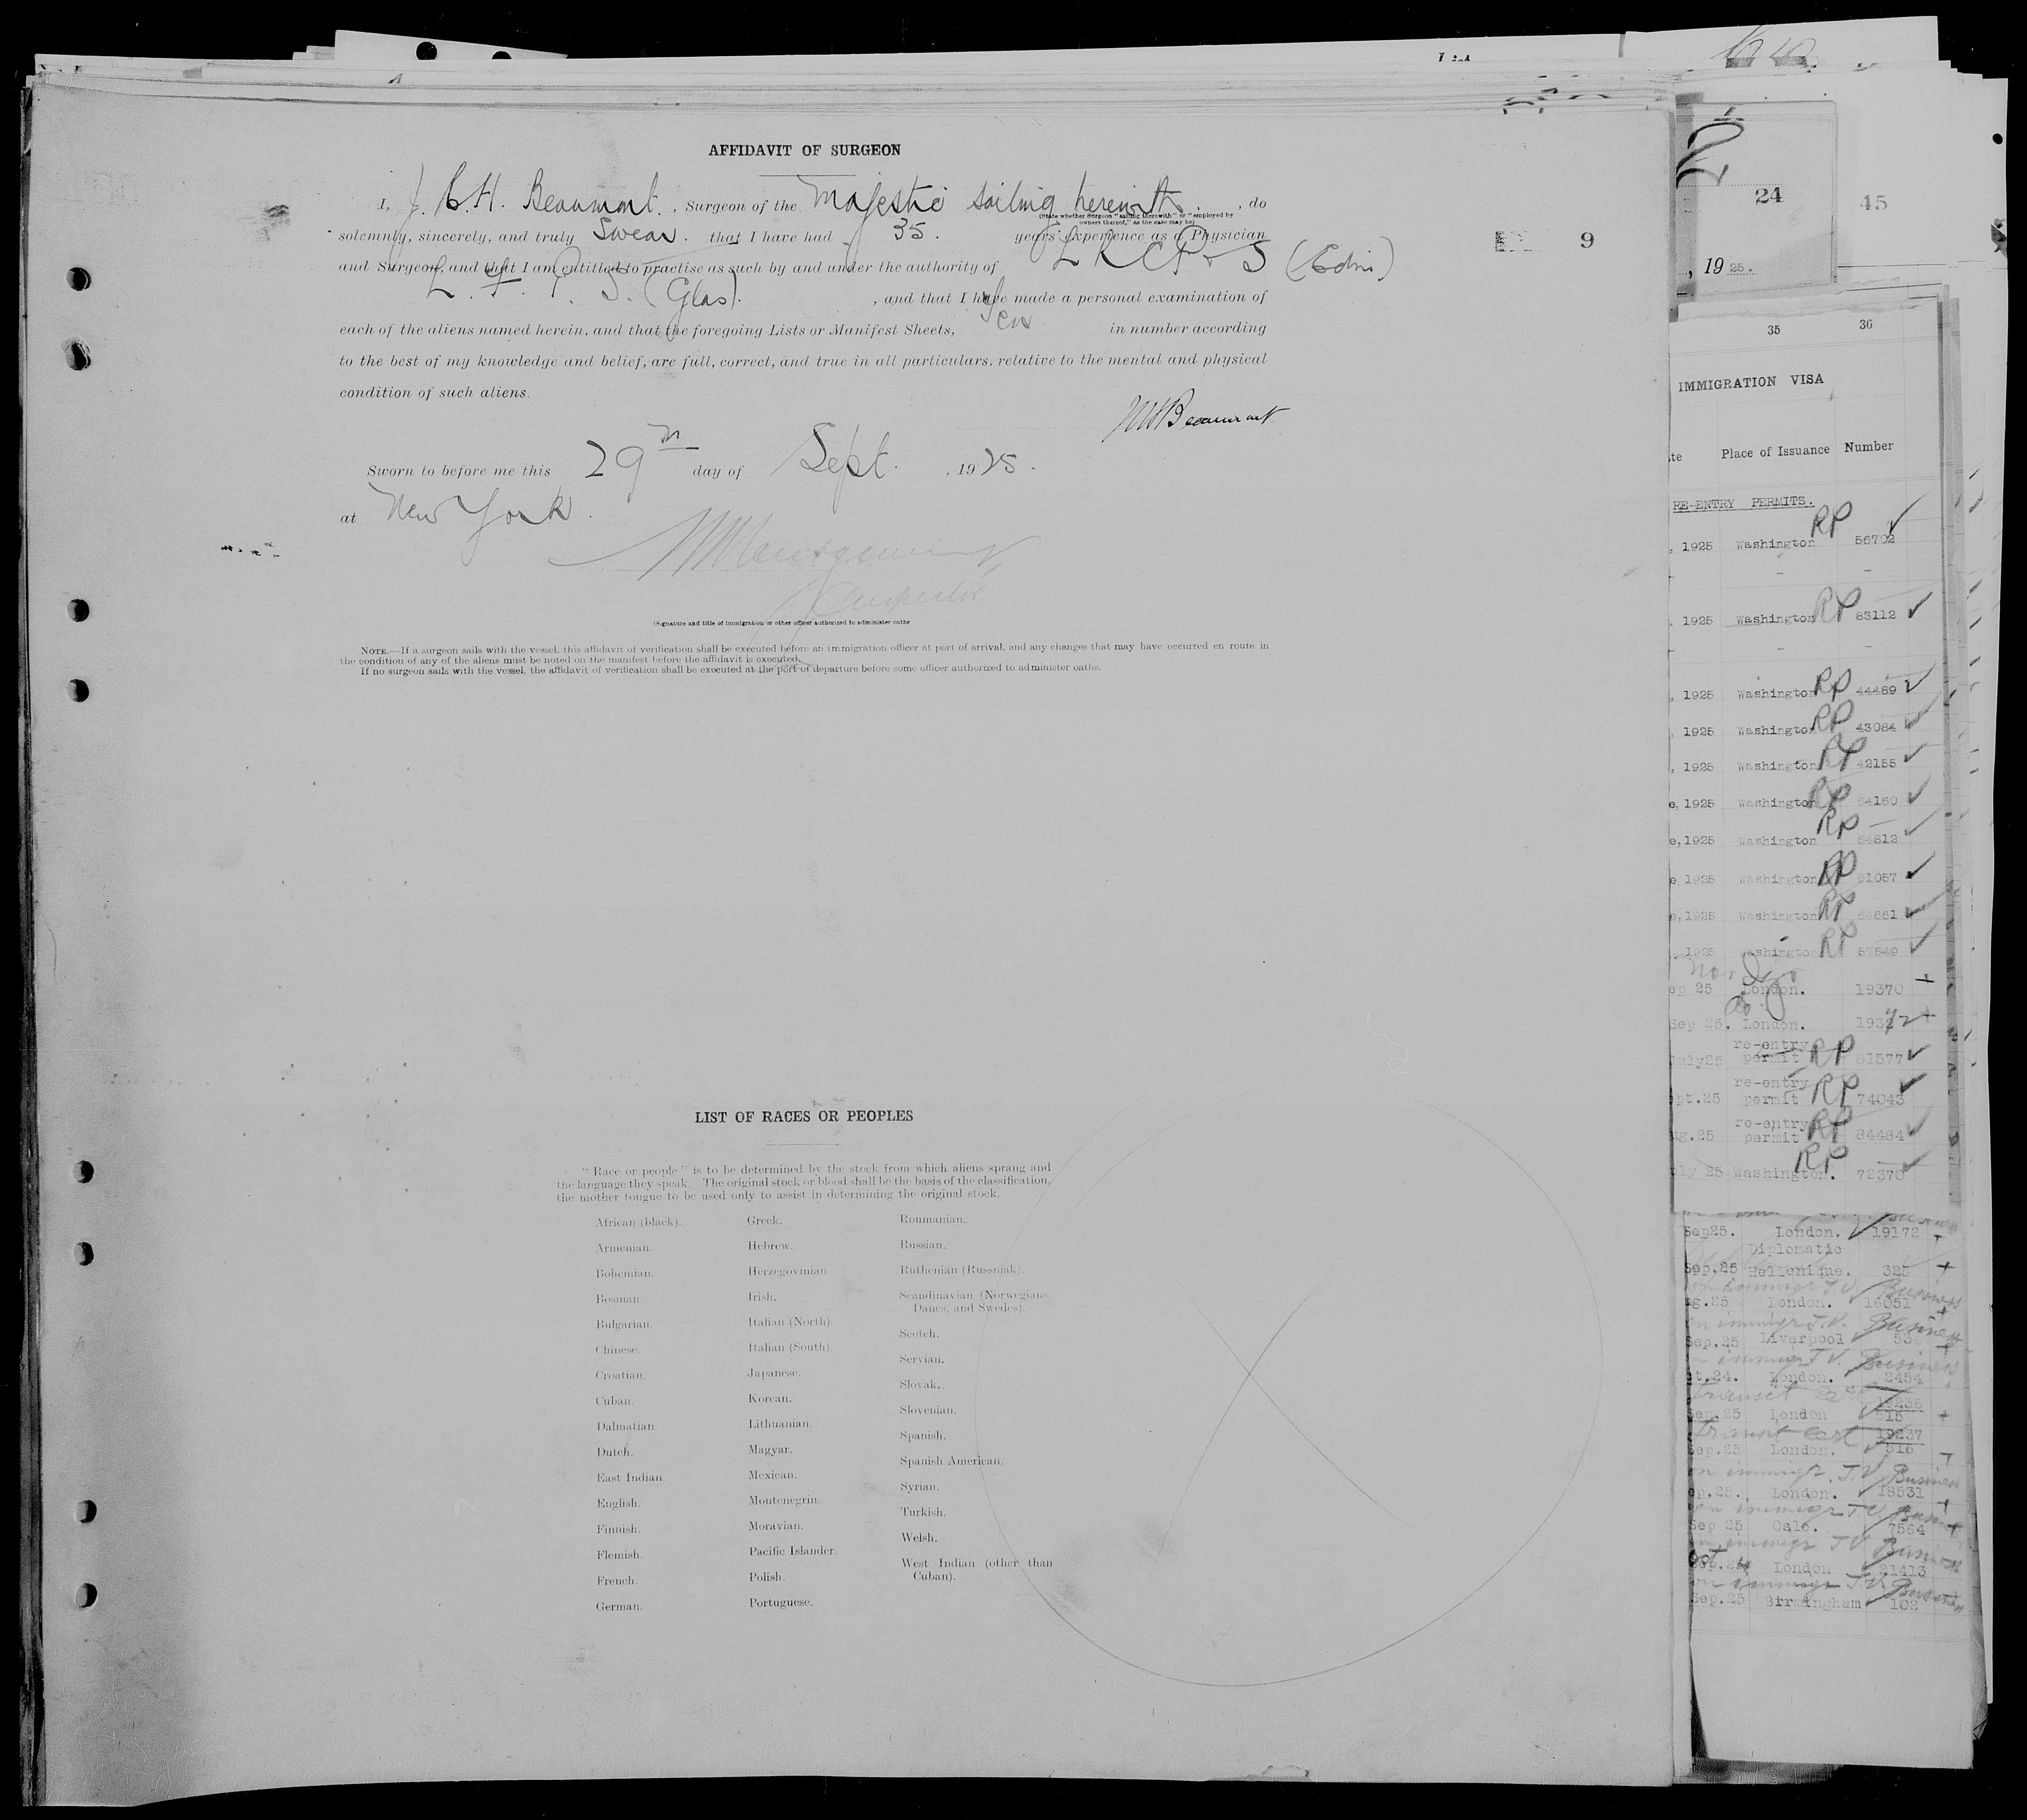 AFFIDAVIT OF SURGEON
I, J. C. H. Beaumont. , Surgeon of the Majestic sailing herewith. , do
(State whether Surgeon "sailing therewith" or "employed by
owners thereof," as the case may be)
solemnly, sincerely, and truly Swear. that I have had 35. years' experience as a Physician
and Surgeon, and that I am entitled to practise as such by and under the authority of L R C P + S (Edin)
L. F. P. S. (Glas). , and that I have made a personal examination of
each of the aliens named herein, and that the foregoing Lists or Manifest Sheets, Ten in number according
to the best of my knowledge and belief, are full, correct, and true in all particulars, relative to the mental and physical
condition of such aliens.
Beaumont
Sworn to before me this 29th day of Sept. , 1925.
at New York.
Inspector
(Signature and title of immigration or other officer authorized to administer oaths
NOTE.—If a surgeon sails with the vessel, this affidavit of verification shall be executed before an immigration officer at port of arrival, and any changes that may have occurred en route in
the condition of any of the aliens must be noted on the manifest before the affidavit is executed.
If no surgeon sails with the vessel, the affidavit of verification shall be executed at the port of departure before some officer authorized to administer oaths.
9
LIST OF RACES OR PEOPLES
"Race or people" is to be determined by the stock from which aliens sprang and
the language they speak. The original stock or blood shall be the basis of the classification,
the mother tongue to be used only to assist in determining the original stock.
African (black).
Armenian.
Bohemian.
Bosnian.
Bulgarian.
Chinese.
Croatian.
Cuban.
Dalmatian.
Dutch.
East Indian.
English.
Finnish.
Flemish.
French.
German.
Greek.
Hebrew.
Herzegovinian
Irish.
Italian (North).
Italian (South).
Japanese.
Korean.
Lithuanian.
Magyar.
Mexican.
Montenegrin.
Moravian.
Pacific Islander.
Polish.
Portuguese.
Roumanian.
Russian.
Ruthenian (Russniak).
Scandinavian (Norwegians,
Danes, and Swedes).
Scotch.
Servian.
Slovak.
Slovenian.
Spanish.
Spanish American.
Syrian.
Turkish.
Welsh.
West Indian (other than
Cuban).
24
45
, 19 25.
35 36
IMMIGRATION VISA
te Place of Issuance Number
RE-ENTRY PERMITS.
, 1925 Washington RP 56702
. 1925 Washington RP 83112
, 1925 Washington RP 44489
1925 Washington RP 43084
, 1925 Washington RP 42155
e, 1925 Washington RP 64160
e, 1925 Washington RP 64812
e 1925 Washington RP 61057
e, 1925 Washington RP 64661
1925 Washington RP 57549
ep 25 London. 19370
do
Sep 25. London.
re-entry
uly25 permit RP 81577
re-entry
pt.25 permit RP 74043
re-entry
ug.25 permit RP 84484
uly 25 Washington. RP 72370
Sep25. London. 19172
Diplomatic
Sep.25 Hellenique. 325
immigr T.V. Business
ug.25 London. 16051
on immigr T.V. Business
Sep.25 Liverpool
immigr T.V. Business
t.24. London. 2454
Transit Cert
19236
Sep.25 London 515
Transit Cert
19237
Sep.25 London. 516
on immigr. T.V. Business
ep.25. London. 18531
on immigr T.V. Business
Sep 25 Oslo. 7564
immigr T.V. Business
London 21413
on immigr T.V. Business
Sep.25 Birmingham 102